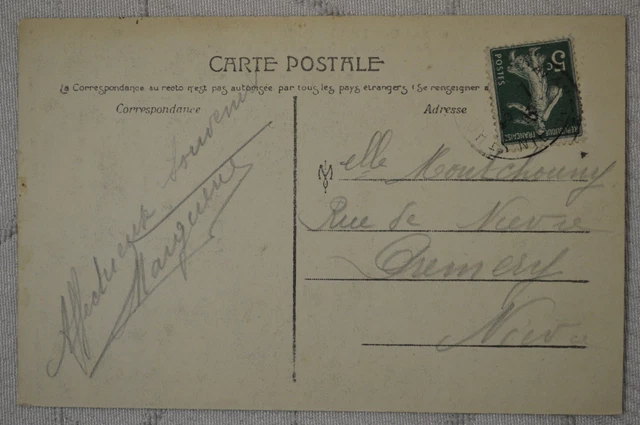 CARTE POSTALE
La Correspondance au recto n'est pas autorisée par tous les pays étrangers (Se renseigner à
Correspondance
Adresse
Affectueux souvenir
Marguerite
Melle Montchouny
Rue de Nièvre
Premery
Nièvre
5c
POSTES
REPUBLIQUE FRANÇAISE